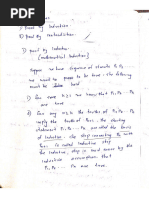 1) Proof by Induction
2) Proof by contradiction
1) proof by Induction
(mathematical Induction)
Suppose we have sequence of statements P1 P2
we need to prove to be true. The following
must be true
1) For some n≥1 we know that P1, P2, ... Pn
are true.
2) For any n≥1 the truths of P1, P2 ... Pn
imply the truth of Pn+1. The starting
statement P1, P2 ... Pn are called the basis
of induction. The step connecting Pn with
Pn+1 is called induction step
The Induction step is now based by the
induction assumption that
P1, P2 ... Pn are true.